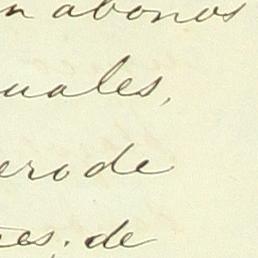 n abonos
uales,
ero de
es. de